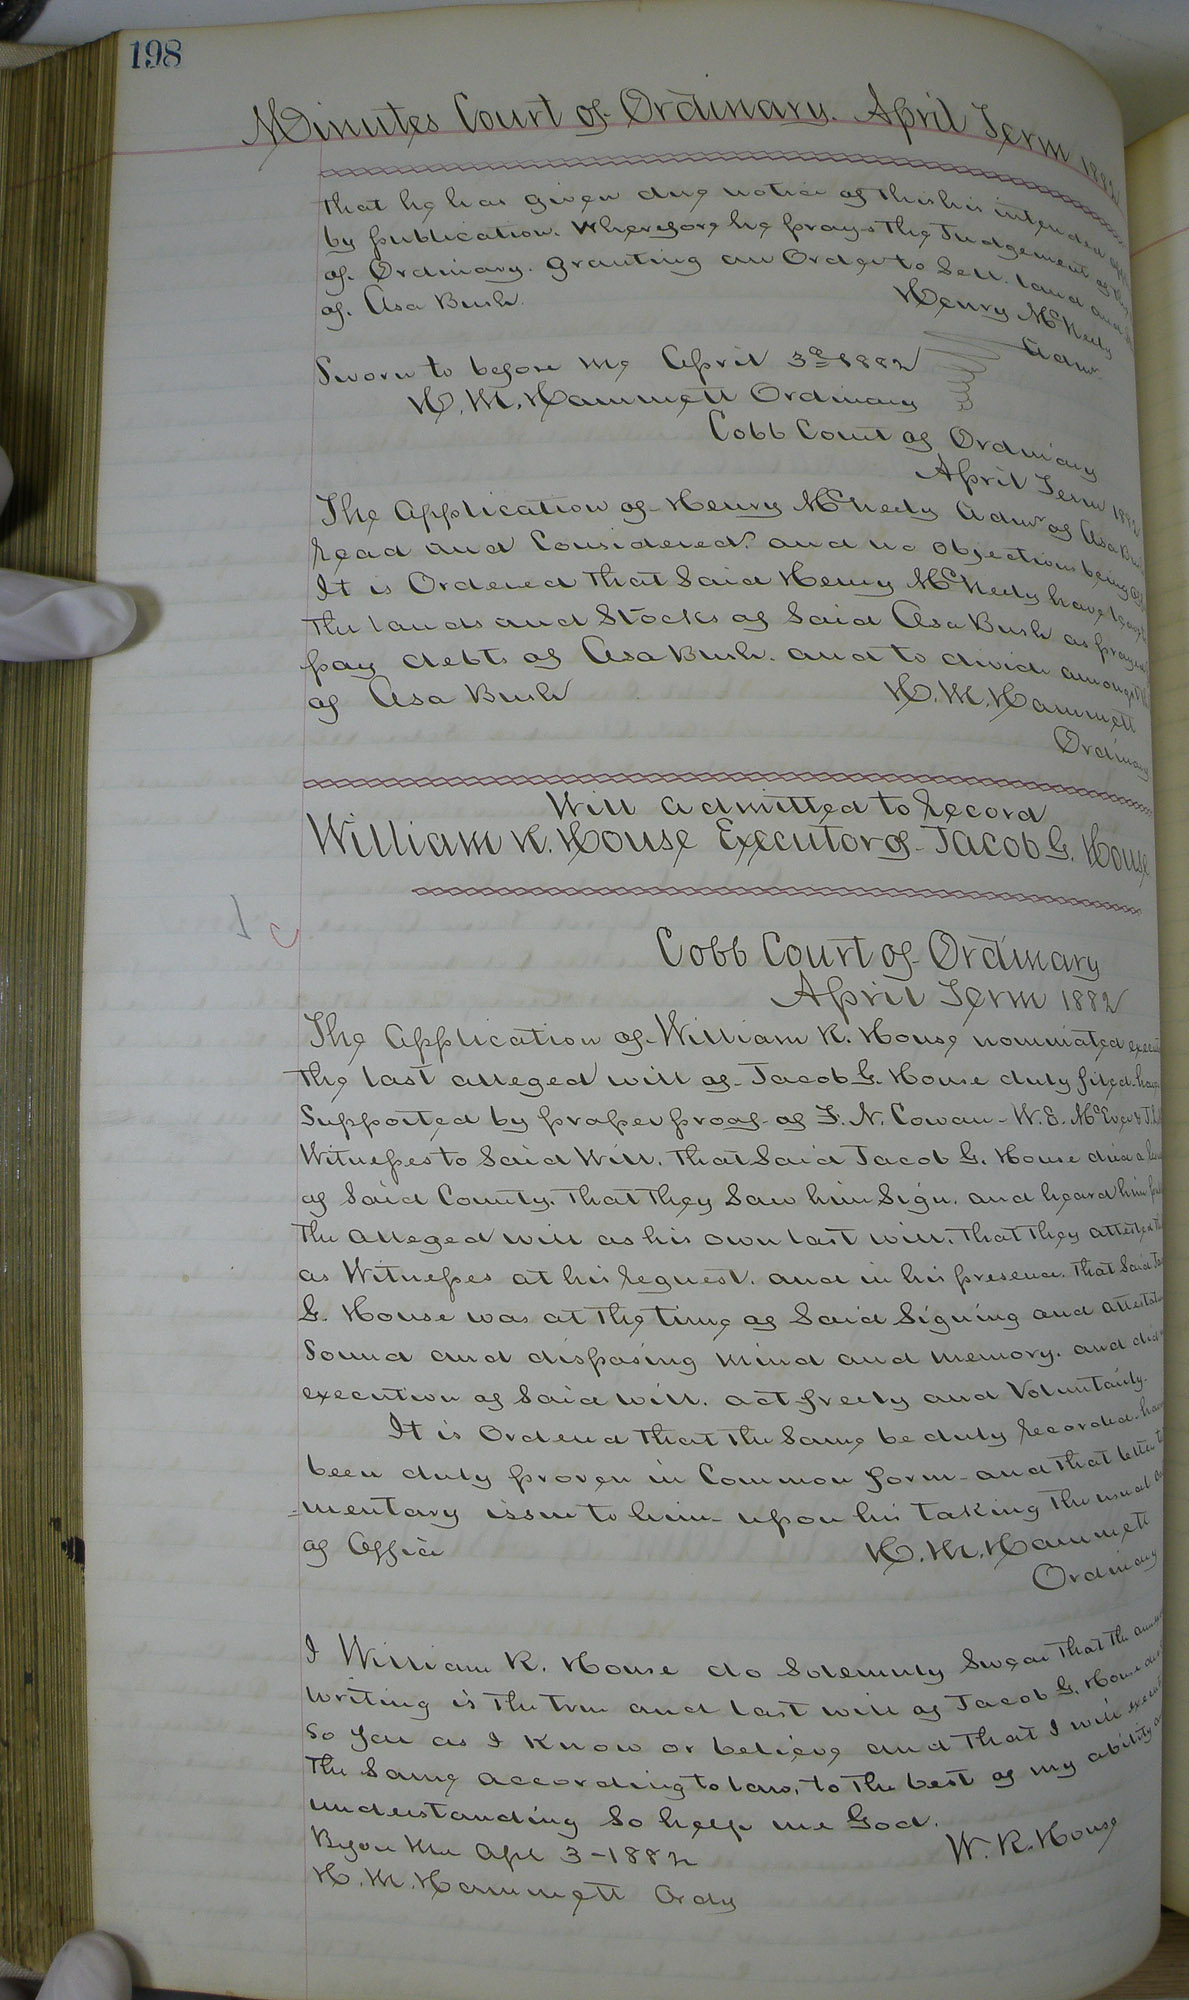 198
Minutes Court of Ordinary. April Term 1882
that he has given due notice of this his intended
by publication. Wherefore he prays the Judgement of
of Ordinary. granting an Order to Sell land and
of. Asa Bush.
Henry McNeely
Admr.
Sworn to before me April 3d 1882
H. M. Hammett Ordinary
Cobb Court of Ordinary
April Term 1882
The Application of Henry McNeely Admr of Asa Bush
Read and Considered. and no objections being
It is Ordered that Said Henry McNeely have leave
the lands and Stocks of Said Asa Bush as prayed
pay debts of Asa Bush. and to divide amongst
of Asa Bush
H. M. Hammett
Ordinary
Will admitted to Record
William R. House Executor of Jacob G. House
Cobb Court of Ordinary
April Term 1882
The Application of William R. House nominated
the last alleged will of Jacob G. House duly filed
Supported by proper proof of F. N. Cowan - W. E. McEver &
Witnesses to Said Will. that Said Jacob G. House died a
of Said County. that they Saw him Sign. and heard him
the alleged will as his own last will. that they attested
as Witnesses at his request. and in his presence. that Said
G. House was at the time of Said Signing and
Sound and disposing mind and memory. and did
execution of Said will. act freely and Voluntarily.
It is Ordend that the Same be duly recorded
been duly proven in Common form - and that letter
-mentary issue to him - upon his taking the usual
of Office
H. M. Hammett
Ordinary
I William R. House do Solemnly Swear that the
writing is the true and last will of Jacob G. House
So far as I know or believe and that I will
the Same according to law, to the best of my ability
understanding So help me God.
Before me Apl 3 - 1882
W. R. House
H. M. Hammett Ordy